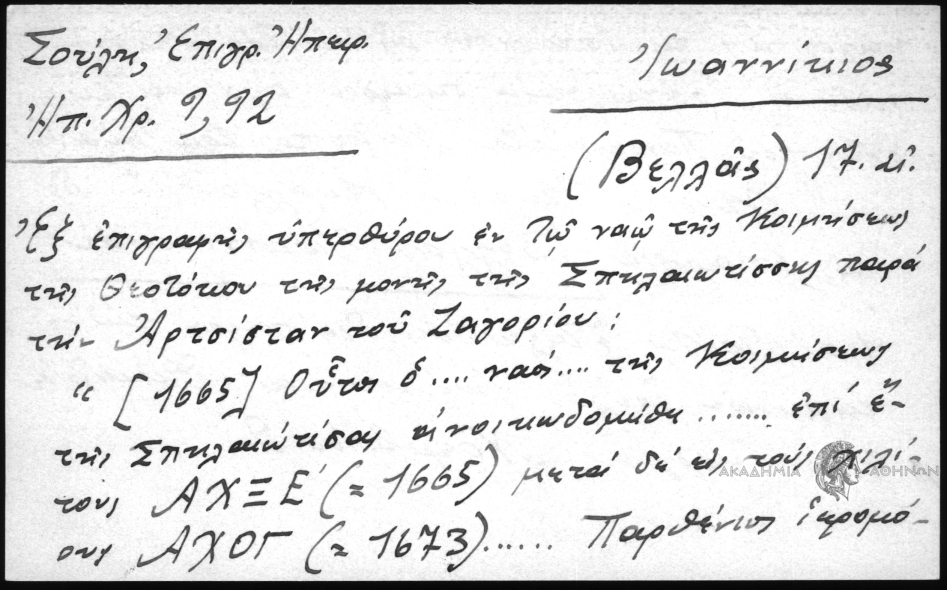 Σούλη, Ἐπιγρ. Ἠπειρ.
Ἰωαννίκιος
Ἠπ. Χρ. 9, 92
(Βελλᾶς) 17. αἰ.
Ἐξ ἐπιγραφῆς ὑπερθύρου ἐν τῷ ναῷ τῆς Κοιμήσεως
τῆς Θεοτόκου τῆς μονῆς τῆς Σπηλαιωτίσσης παρά
τὴν Ἀρτσίσταν τοῦ Ζαγορίου :
“ [1665] Οὗτος ὁ .... ναός .... τῆς Κοιμήσεως
τῆς Σπηλαιωτίσας ἀνοικωδομήθη ........ ἐπί ἔ-
τους ΑΧΞΕ (= 1665) μετά δέ εἰς τούς χιλί-
ους ΑΧΟΓ (= 1673)...... Παρθένιος ἱερομό-
ΑΚΑΔΗΜΙΑ ΑΘΗΝΩΝ